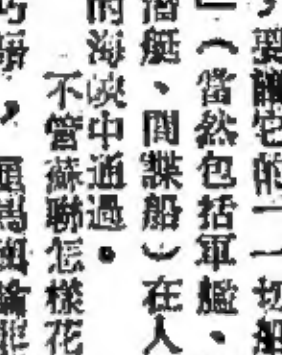 ，要讓它的一一切船
（當然包括軍艦、
潛艇、間諜船）在人
的海峽中通過。
不管蘇聯怎樣花